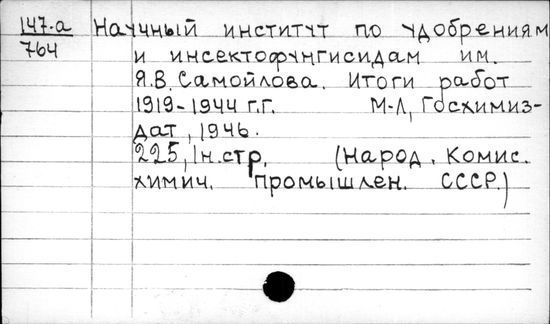 147-а Научный институт по удобрениям
764 и инсектофунгисидам им.
Я.В. Самойлова. Итоги работ
1919-1944 г.г. М-Л, Госхимиз-
дат, 1946.
225, 1н.стр. (Народ. Комис.
химич. промышлен. СССР.)